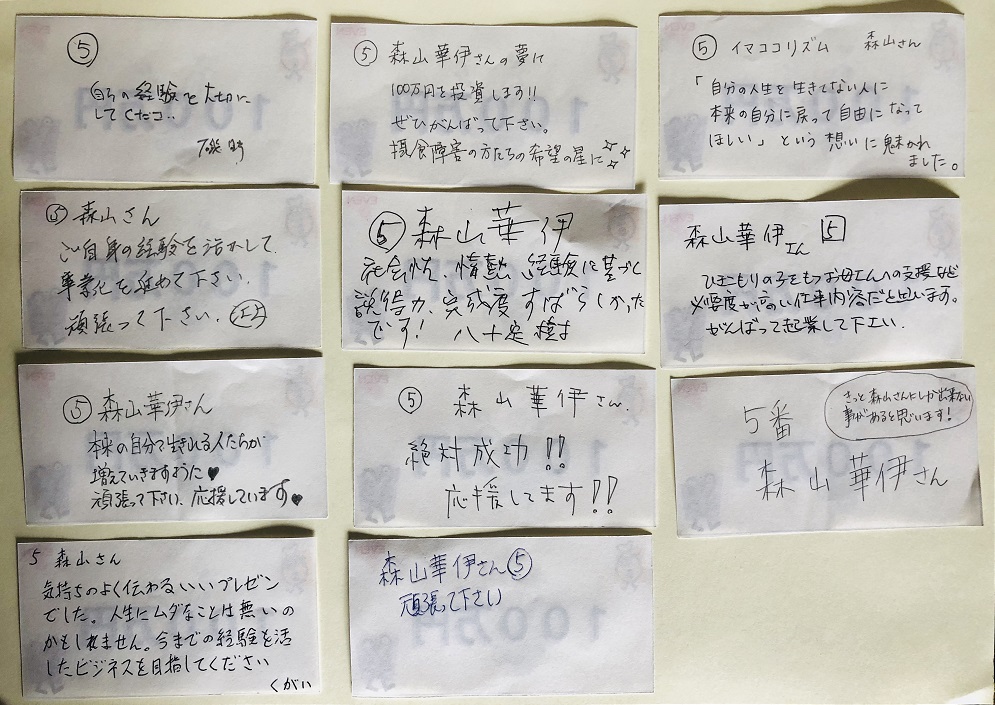 ⑤
自分の経験を大切に
してください‥
⑤ 森山華伊さんの夢に
100万円を投資します!!
ぜひがんばって下さい。
摂食障害の方たちの希望の星に
⑤ イマココリズム 森山さん
「自分の人生を生きてない人に
本来の自分に戻って自由になって
ほしい」という想いに魅かれ
ました。
⑤ 森山さん
ご自身の経験を活かして
事業化を進めて下さい。
頑張って下さい。
⑤ 森山華伊
社会性、情熱、経験に基づく
説得力、完成度すばらしかった
です!
森山華伊さん 5
ひきこもりの子をもつお母さんへの支援など
必要度が高い仕事内容だと思います。
がんばって起業して下さい.
⑤ 森山華伊さん
本来の自分で生きれる人たちが
増えていきますように♥
頑張って下さい、応援しています♥
⑤ 森山華伊さん.
絶対成功!!
応援してます!!
きっと森山さんにしか出来ない
事があると思います!
5番
森山華伊さん
5 森山さん
気持ちのよく伝わるいいプレゼン
でした。人生にムダなことは無いの
かもしれません。今までの経験を活
したビジネスを目指してください
くがい
森山華伊さん⑤
頑張って下さい
100万円